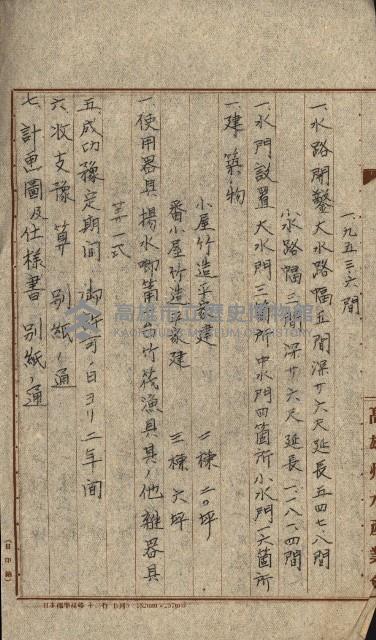 一、九五三六間
一、水路開鑿 大水路幅五間深サ六尺延長五四七、八間
小水路幅三間 深サ六尺 延長一、一八一、四間
一、水門設置 大水門三箇所 中水門四箇所 小水門六箇所
一、建築物
小屋竹造平家建 二棟 二〇坪
番小屋竹造平家建 三棟 六坪
一、使用器具 揚水喞筒 台竹筏漁具其ノ他雜器具
一式
五、成功豫定期間 御許可ノ日ヨリ二年間
六、收支豫算 別紙ノ通
七、計画圖及仕樣書 別紙ノ通
高雄州水產業會
高雄市立歷史博物館
KAOHSIUNG MUSEUM OF HISTORY